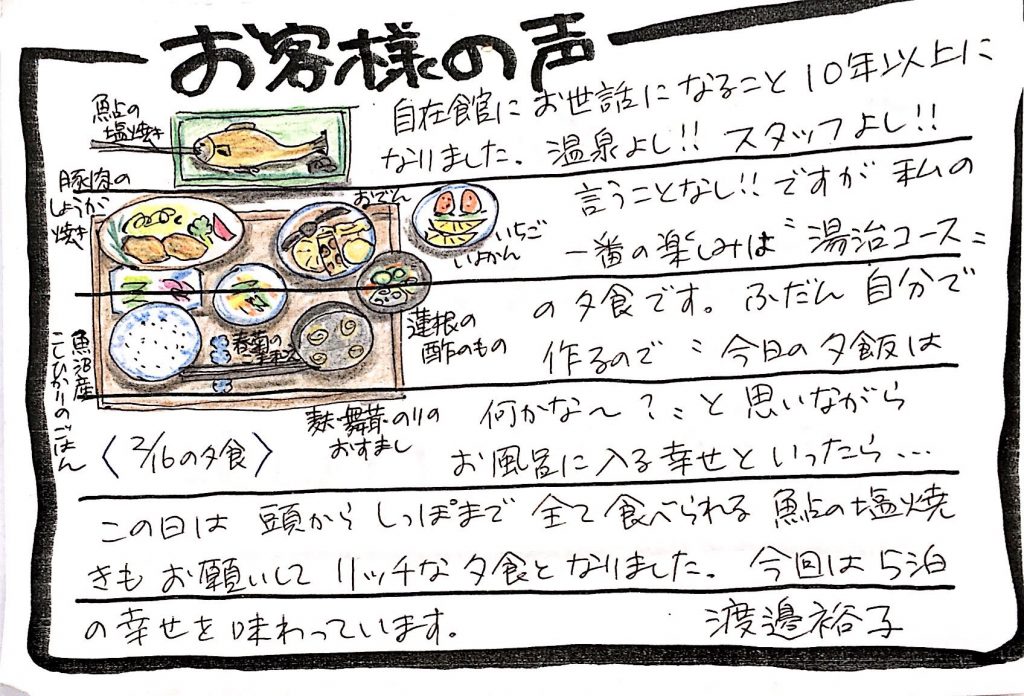 お客様の声
自在館にお世話になること10年以上に
なりました。温泉よし!! スタッフよし!!
言うことなし!! ですが 私の
一番の楽しみは〝湯治コース〟
の夕食です。ふだん 自分で
作るので〝今日の夕飯は
何かな〜?〟と思いながら
お風呂に入る幸せといったら…
この日は 頭からしっぽまで 全て食べられる 鮎の塩焼
きもお願いして リッチな夕食となりました。今回は5泊
の幸せを味わっています。
渡邉裕子
鮎の
塩焼き
豚肉の
しょうが
焼き
おでん
いちご
いよかん
蓮根の
酢のもの
春菊の
ごま和え
魚沼産
こしひかりのごはん
麩・舞茸・のりの
おすまし
〈2/16の夕食〉